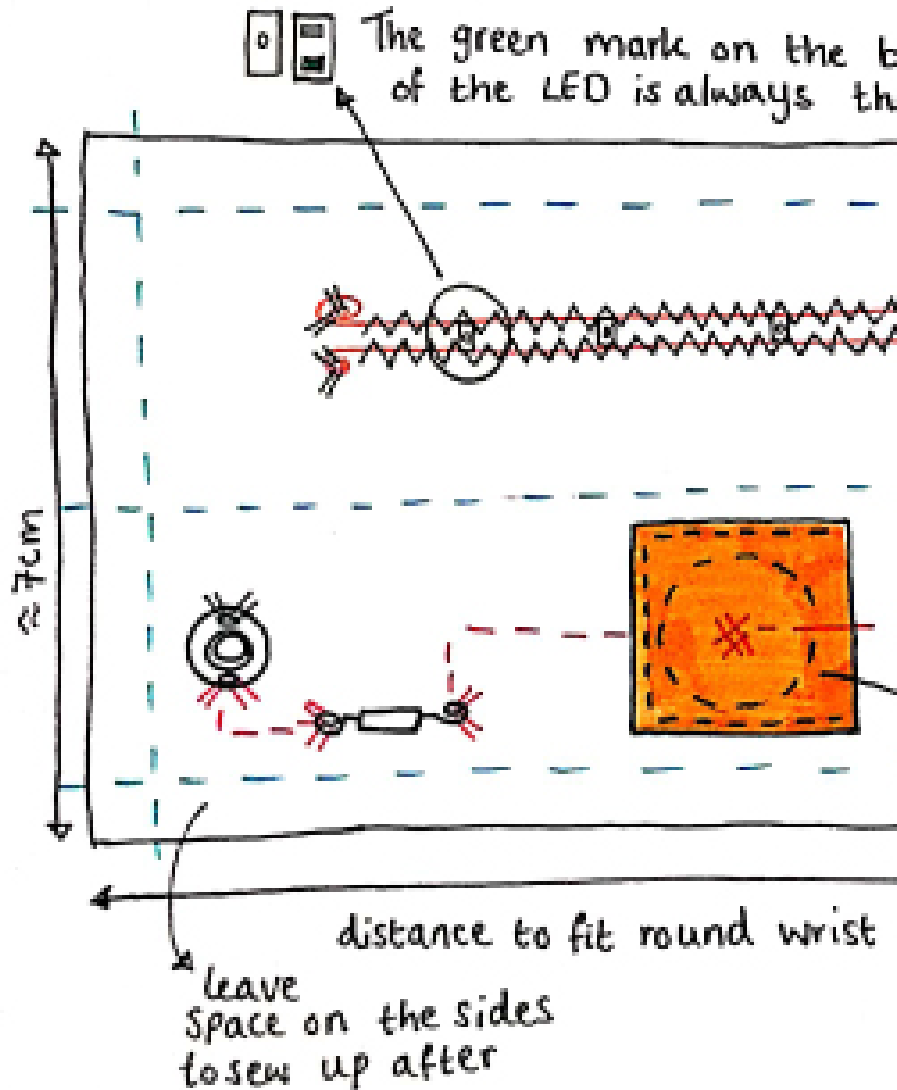 The green mark on the b
of the LED is always th
≈ 7cm
distance to fit round wrist
leave
space on the sides
to sew up after